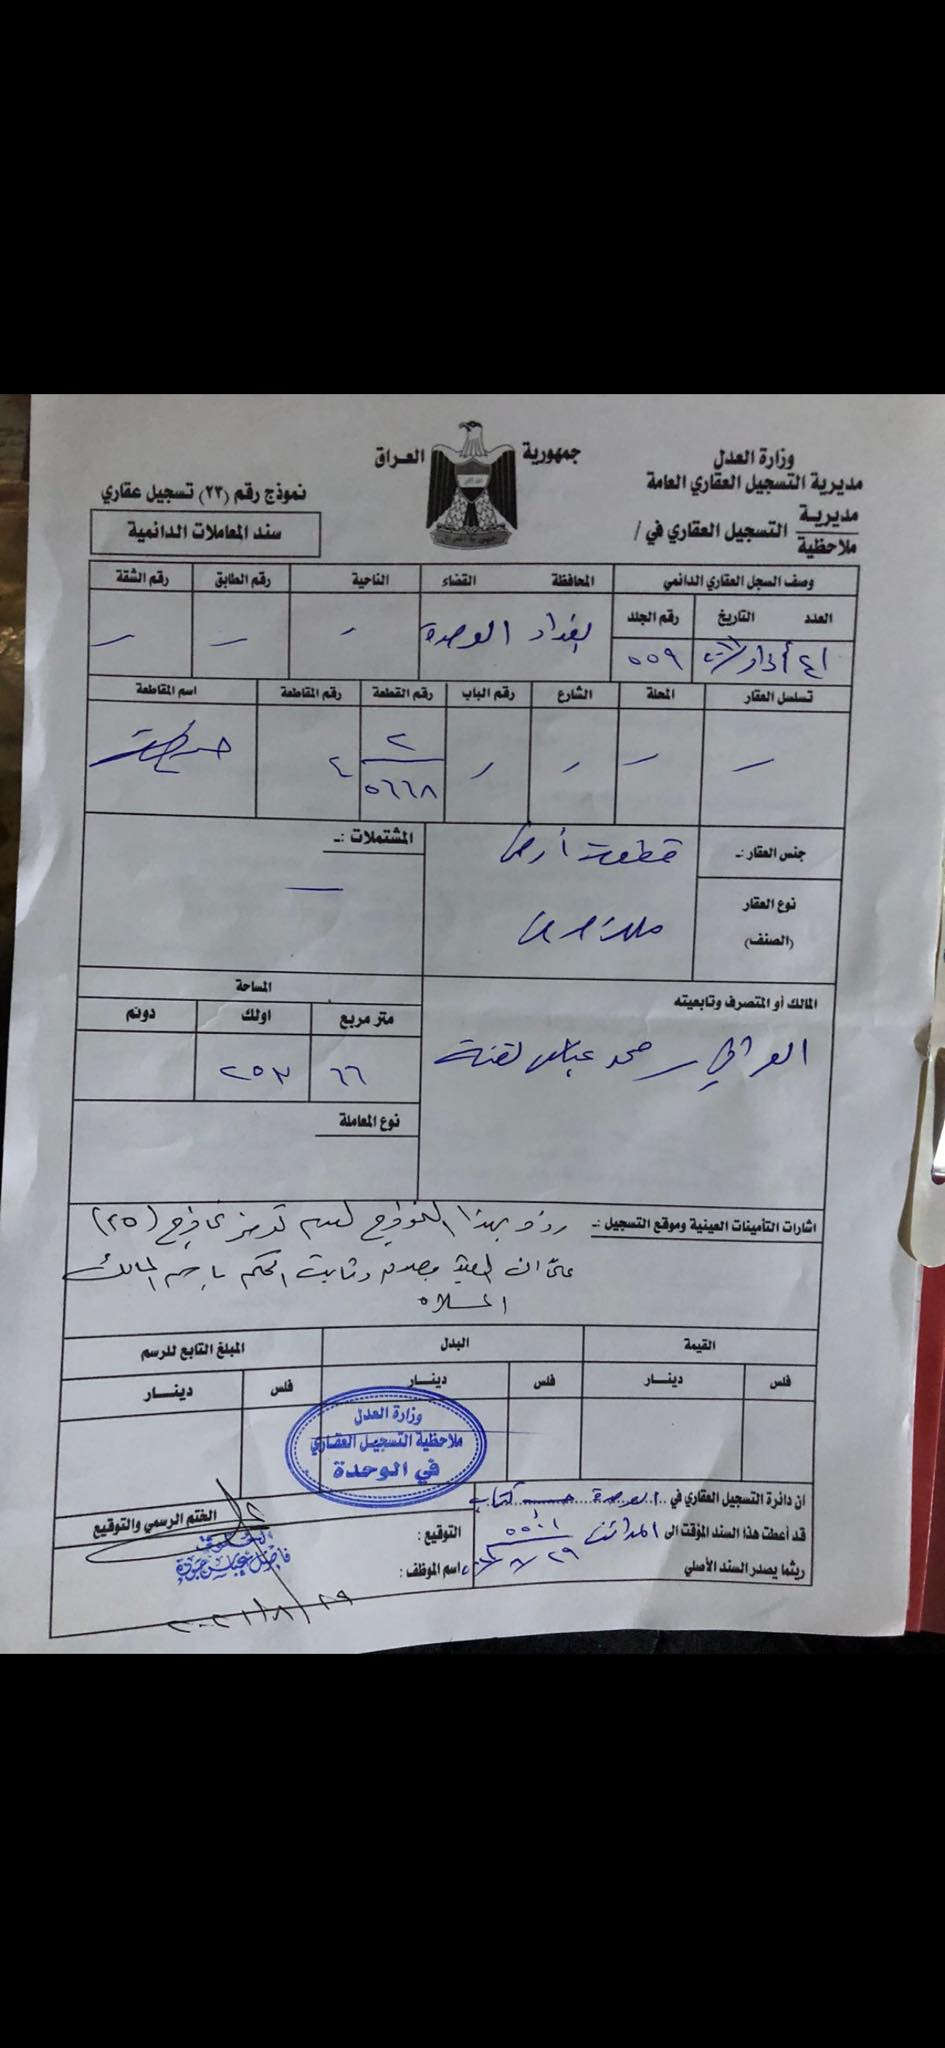 جمهورية العراق
وزارة العدل
مديرية التسجيل العقاري العامة
مديرية
ملاحظية
التسجيل العقاري في /
نموذج رقم (٢٣) تسجيل عقاري
سند المعاملات الدائمية
وصف السجل العقاري الدائمي
المحافظة القضاء الناحية رقم الطابق رقم الشقة
العدد التاريخ رقم الجلد
بغداد الوحدة - - -
٥٥٩
تسلسل العقار المحلة الشارع رقم الباب رقم القطعة رقم المقاطعة اسم المقاطعة
- - - - ٢ ٤
٥٦٦٨
جنس العقار :- قطعة ارض
المشتملات :-
-
نوع العقار
(الصنف)
المالك أو المتصرف وتابعيته
العراقي محمد عباس لفتة
المساحة
متر مربع اولك دونم
٦٦ ٢٥٣
نوع المعاملة
اشارات التأمينات العينية وموقع التسجيل :- زود بهذا النموذج لعدم توفر نماذج (٢٥)
على ان القيد مصدق وثابت الحكم باسم المالك
اعلاه
القيمة البدل المبلغ التابع للرسم
فلس دينار فلس دينار فلس دينار
وزارة العدل
ملاحظية التسجيل العقاري
في الوحدة
ان دائرة التسجيل العقاري في الوحدة حسب كتاب
قد اعطت هذا السند المؤقت الى المدائن ٥٥٠١
ريثما يصدر السند الأصلي
التوقيع :
اسم الموظف :
الختم الرسمي والتوقيع
فاضل عباس جودة
٢٠٢١/٨/٢٩